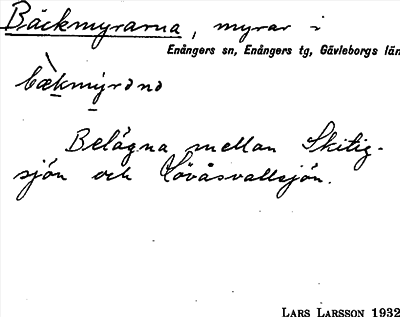 Bäckmyrarna, myrar i
Enångers sn, Enångers tg, Gävleborgs län
bækmýrənə
Belägna mellan Skitig-
sjön och Lövåsvallsjön.
LARS LARSSON 1932